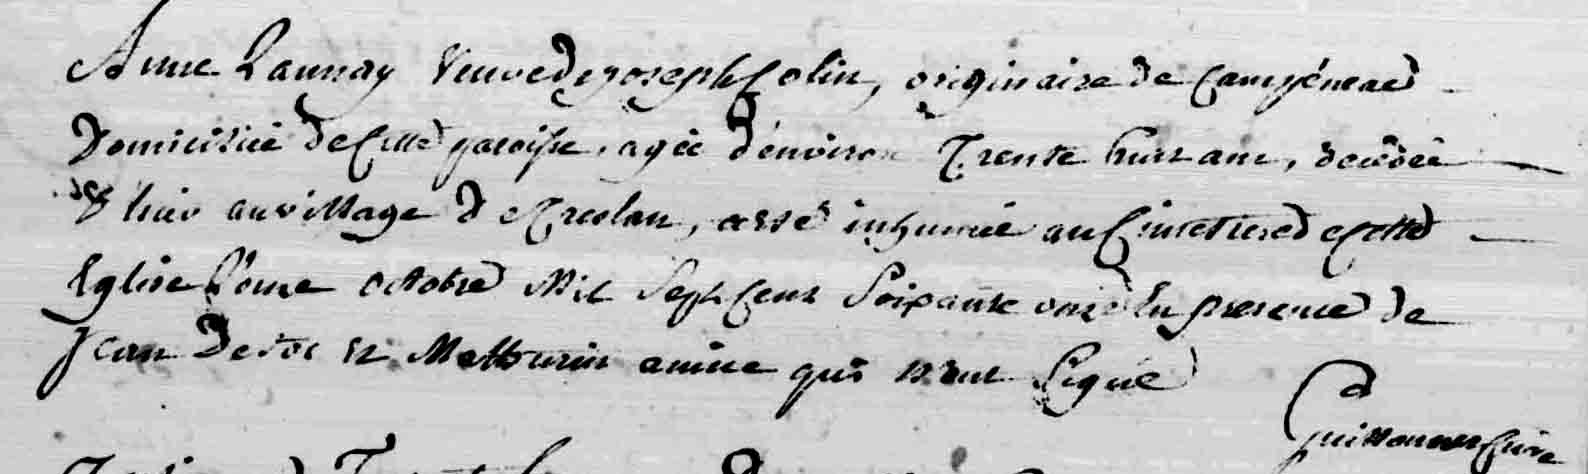 Anne Launay veuve de joseph Colin, originaire de Campéneac
Domiciliée de Cette paroisse, agée d'environ Trente huit ans, décédée
d'hier au village de , a été inhumée au Cimetiere de cette
Eglise l'onze octobre Mil Sept Cent Soixante onze En presence de
Jean et Mathurin qui n'ont Signé
Curé